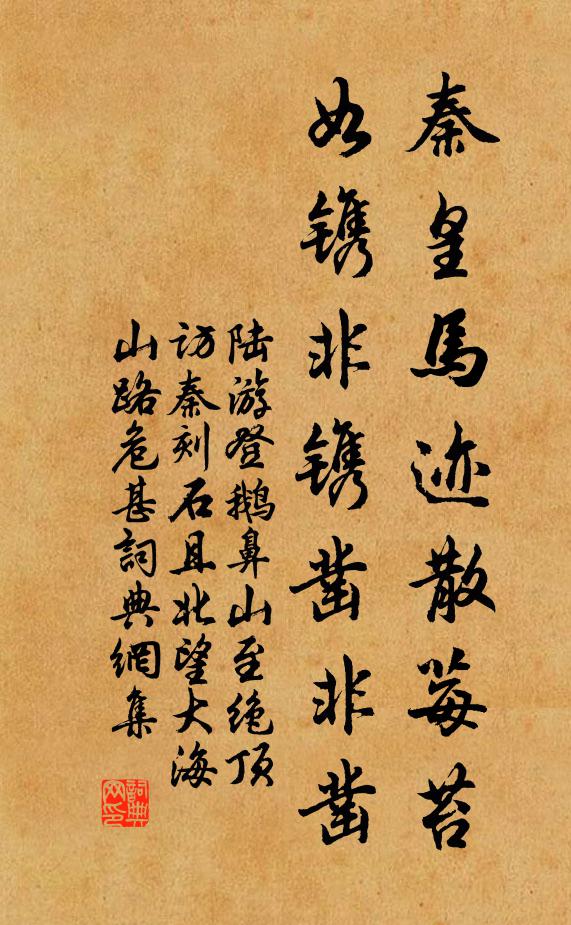 秦皇馬迹散莓苔
如镌非镌凿非凿
陆游登鹅鼻山至绝顶
访秦刻石且北望大海
山路危甚詞典網集
詞典
网印